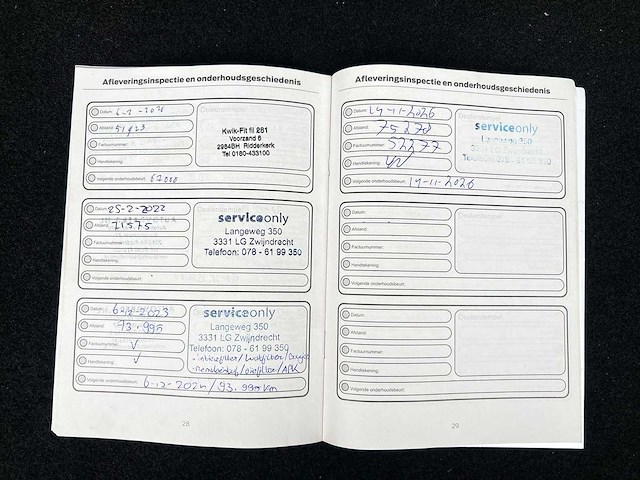 Afleveringsinspectie en onderhoudsgeschiedenis
Datum:
Afstand:
Factuurnummer:
Handtekening:
Volgende onderhoudsbeurt: 67000
Kwik-Fit fil 281
Voorzand 6
2984BH Ridderkerk
Tel 0180-433100
Datum: 25-2-2022
Afstand: 71575
Factuurnummer:
Handtekening:
Volgende onderhoudsbeurt:
serviceonly
Langeweg 350
3331 LG Zwijndrecht
Telefoon: 078 - 61 99 350
Datum:
Afstand: 93.995
Factuurnummer:
Handtekening:
Volgende onderhoudsbeurt: 6-12-2024/
serviceonly
Langeweg 350
3331 LG Zwijndrecht
Telefoon: 078 - 61 99 350
/ APK
28
Afleveringsinspectie en onderhoudsgeschiedenis
Datum:
Afstand: 75278
Factuurnummer: 52277
Handtekening:
Volgende onderhoudsbeurt: 14-11-2026
serviceonly
Langeweg 350
3331 LG Zwijndrecht
Telefoon: 078 - 61 99 350
Datum:
Afstand:
Factuurnummer:
Handtekening:
Volgende onderhoudsbeurt:
Datum:
Afstand:
Factuurnummer:
Handtekening:
Volgende onderhoudsbeurt:
29